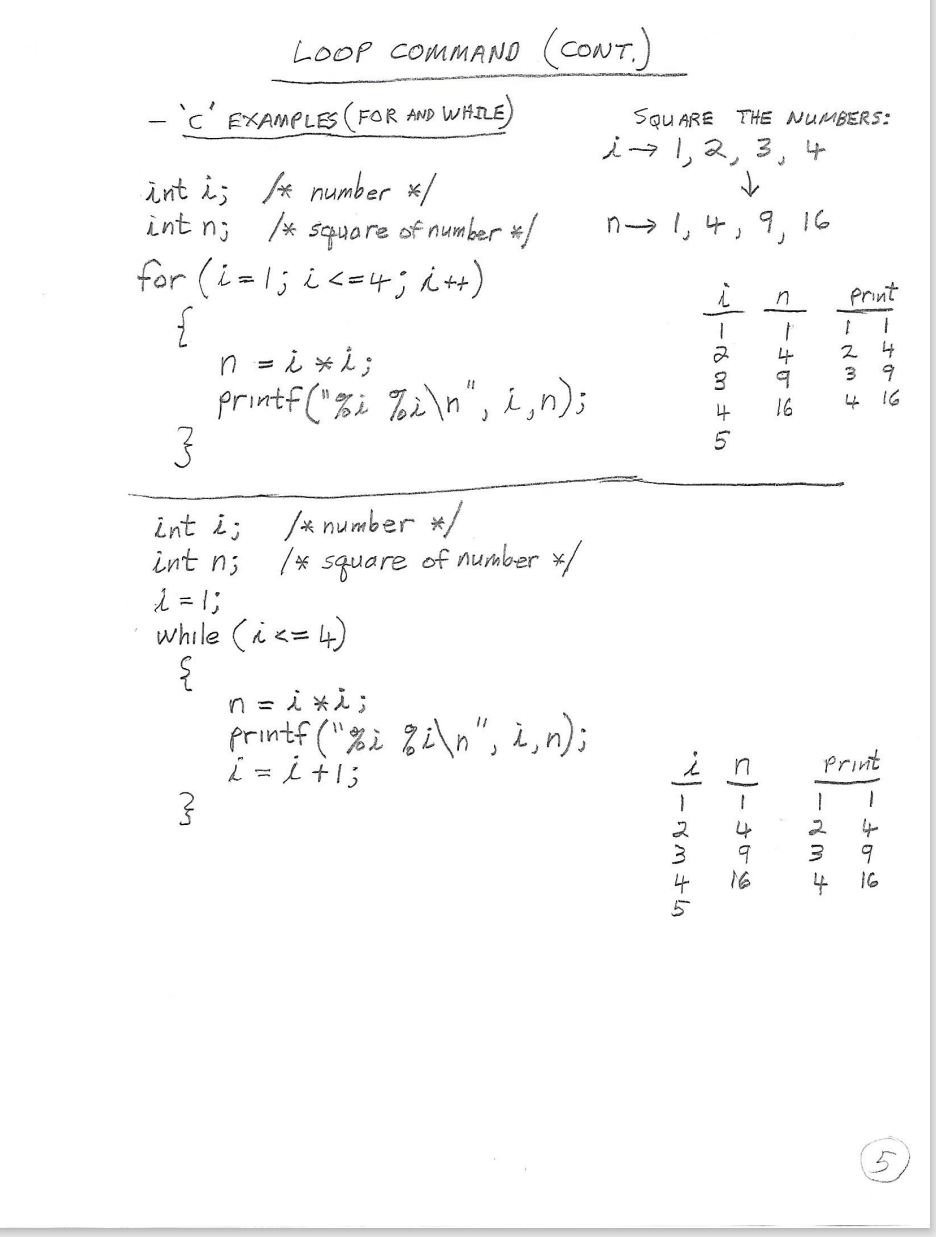 LOOP COMMAND (CONT.)
- 'C' EXAMPLES (FOR AND WHILE)
SQUARE THE NUMBERS:
i → 1, 2, 3, 4
↓
n → 1, 4, 9, 16
int i; /* number */
int n; /* square of number */
for (i=1; i<=4; i++)
{
n = i * i;
printf("%i %i\n", i,n);
}
i n print
1 1 1 1
2 4 2 4
3 9 3 9
4 16 4 16
5
int i; /* number */
int n; /* square of number */
i = 1;
while (i <= 4)
{
n = i * i;
printf("%i %i\n", i,n);
i = i + 1;
}
i n print
1 1 1 1
2 4 2 4
3 9 3 9
4 16 4 16
5
5